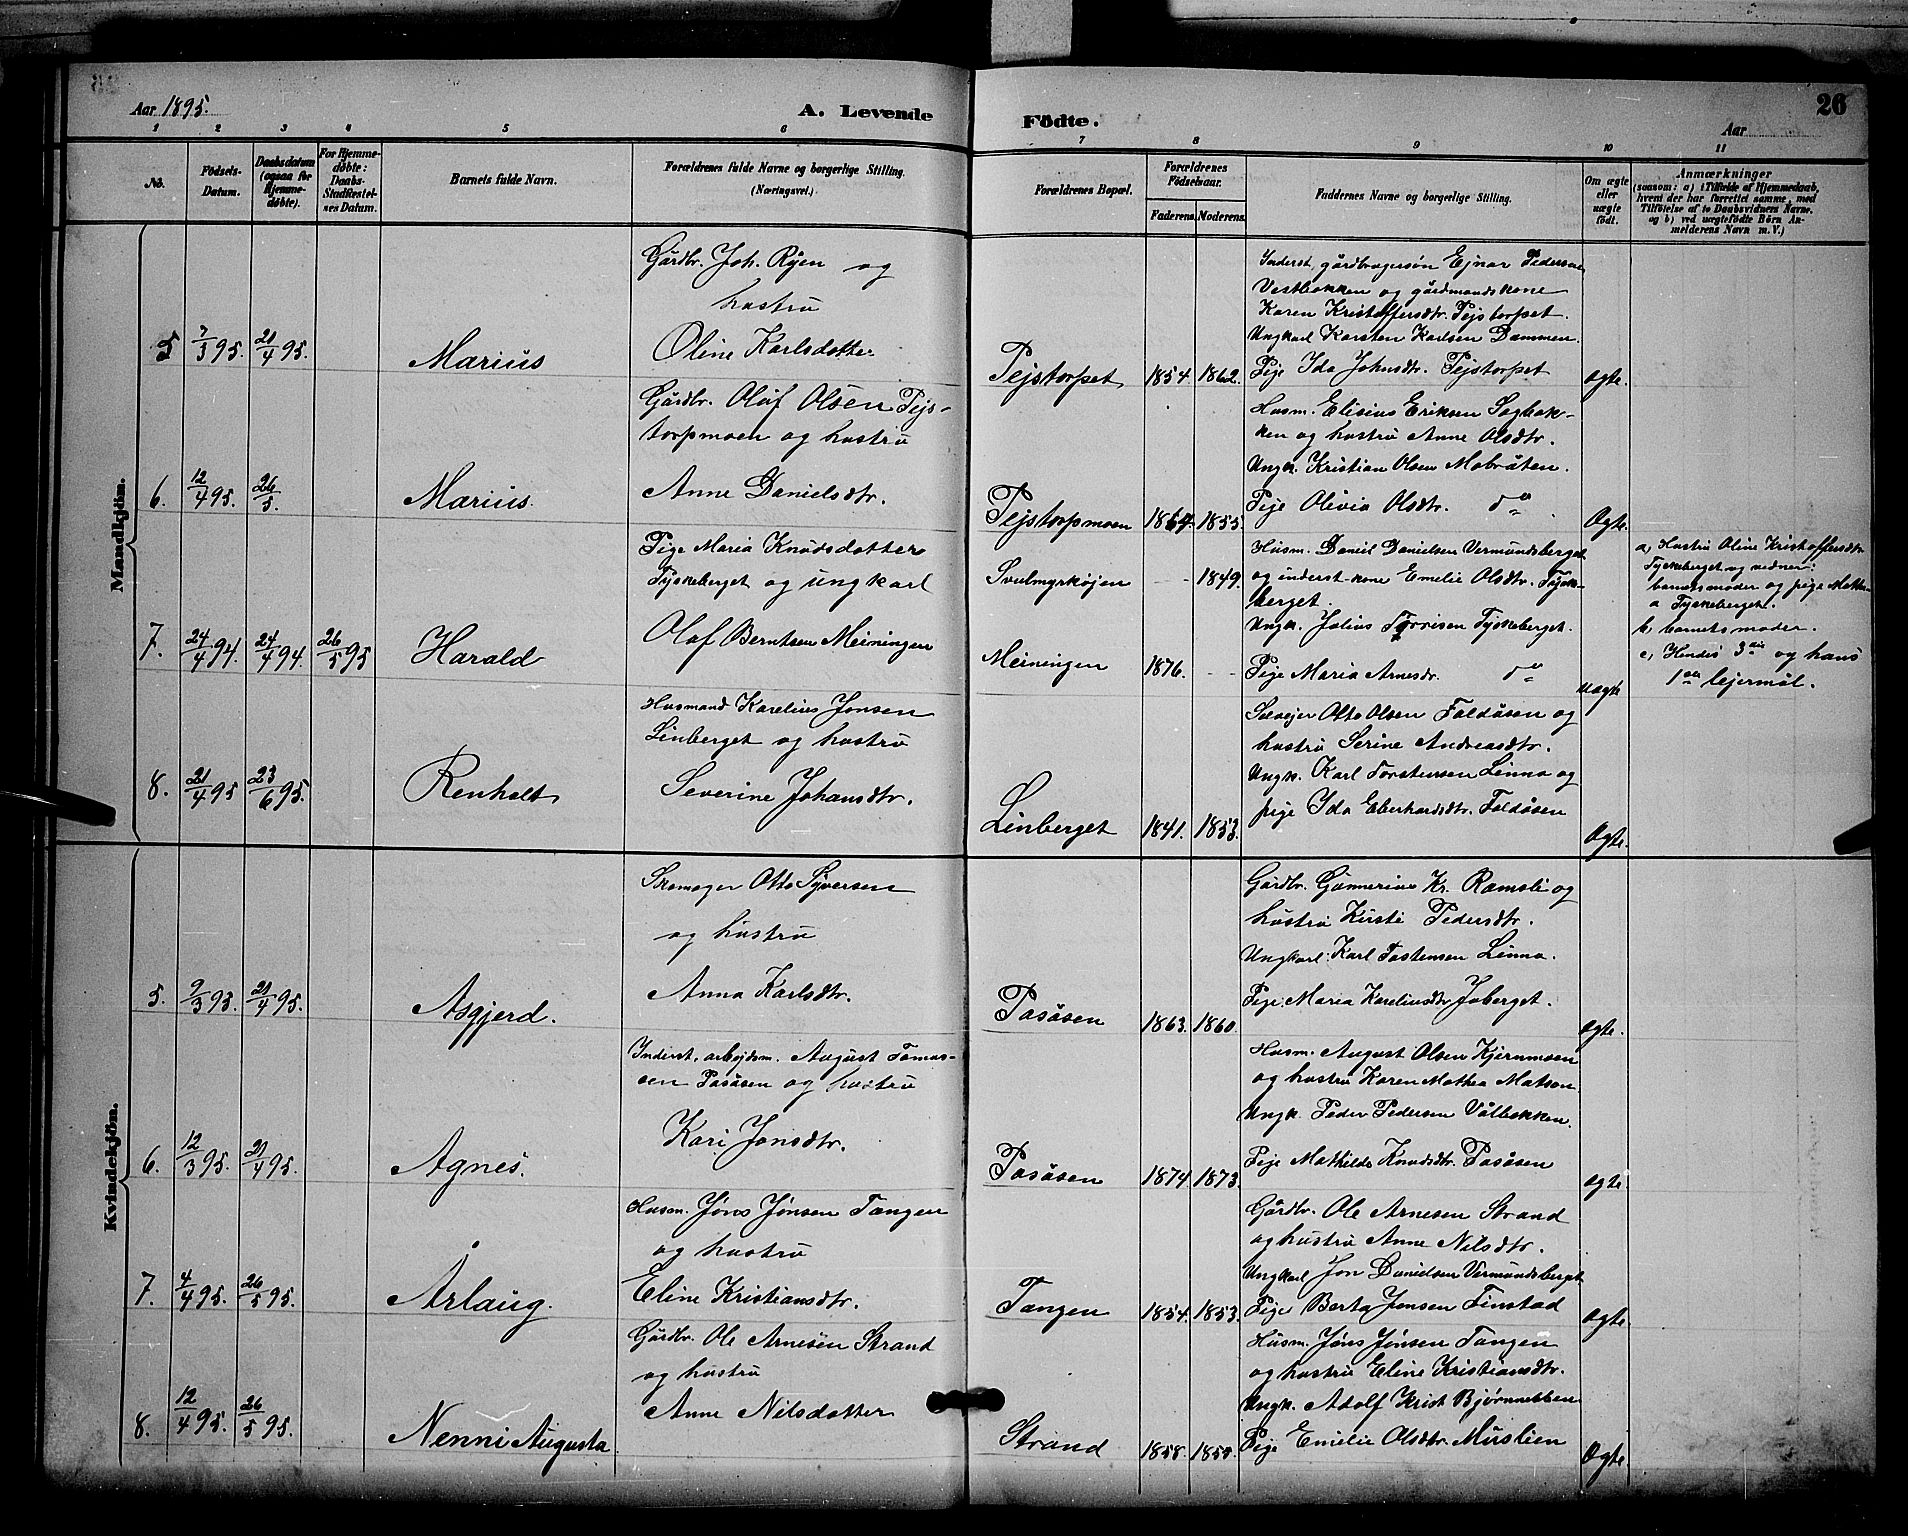 Aar 1895.
A. Levende
Födte.
Aar
26
1 2 3 4 5 6
7 8 9 10 11
No.
Födsels-
Datum.
Daabsdatum
(ogsaa for
Hjemme-
døbte).
For Hjemme-
døbte:
Daabs-
Stadfæstel-
ses Datum.
Barnets fulde Navn.
Forældrenes fulde Navne og borgerlige Stilling.
(Næringsvei.)
Forældrenes Bopæl.
Forældrenes
Födselsaar.
Faderens. Moderens.
Faddernes Navne og borgerlige Stilling.
Om ægte
eller
uægte
født.
Anmærkninger
(saasom: a) i Tilfælde af Hjemmedaab,
hvem der har forrettet samme, med
Tilföielse af to Daabsvidners Navne.
og b) ved uægtefödte Börn An-
melderens Navn m. V.)
Mandkjön.
5 7/3 95. 21/4 95. Marius
Gårdbr. Joh. Ryen og
hustru
Oline Karlsdotter
Pejstorpet 1854. 1862.
Inderst, gårdbrugersøn Ejnar Pedersen
Vestbakken og gårdmandskone
Karen Kristoffersdtr. Pejstorpet.
Ungkarl Karsten Karlsen Dammen.
Pige Ida Johnsdtr. Pejstorpet
ægte.
6. 12/4 95. 26/5. Marius.
Gårdbr. Olaf Olsen Pejs-
torpmoen og hustru
Anne Danielsdtr.
Pejstorpmoen 1864. 1855.
Husm. Elisius Eriksen Sagbak-
ken og hustru Anne Olsdtr.
Ungk. Kristian Olsen Mobråten.
Pige Olivia Olsdtr. do
Ægte.
7. 24/4 94. 24/4 94. 26/5 95 Harald
Pige Maria Knudsdotter
Tyskeberget og ungkarl
Olaf Berntsen Meiningen
Svulmyrkøjen - - 1849.
Meiningen 1876. - -
Husm. Daniel Danielsen Vermundsberget
og inderst-kone Emelie Olsdtr. Tysk-
berget.
Ungk. Julius Torrisen Tyskeberget.
Pige Maria Arnesdr. do
uægte
a, Hustru Oline Kristoffersdtr
Tyskeberget og vidner:
barnets moder og pige Mathe-
a Tyskeberget.
b, barnets moder.
c, Hendes 3die og hans
1ste lejermål.
8. 21/4 95 23/6 95. Renholt
Husmand Karelius Jonsen
Linberget og hustru
Severine Johansdtr.
Linberget 1841. 1853.
Selvejer Otto Olsen Faldåsen og
hustru Serine Andreasdtr.
Ungk. Karl Torstensen Linna og
pige Ida Eberhardsdtr. Faldåsen
Ægte.
Kvindekjön.
5. 9/3 95. 21/4 95. Asgjerd.
Skomager Otto Syversen
og hustru
Anna Karlsdtr.
Pasåsen 1863. 1860.
Gårdbr. Gunnerius Kr. Ramsli og
hustru Kirsti Pedersdtr.
Ungkarl Karl Tostensen Linna.
Pige Maria Kareliusdtr Joberget.
ægte.
6. 12/3 95. 21/4 95. Agnes.
Inderst, arbejdsm. August Tomas-
sen Pasåsen og hustru
Kari Jonsdtr.
Pasåsen 1874. 1873.
Husm. August Olsen Kjernmoen
og hustru Karen Mathea Matson
Ungk. Peder Pedersen Vålbakken.
Pige Mathilde Knudsdtr. Pasåsen
ægte.
7. 4/4 95. 26/5 95. Årlaug.
Husm. Jøns Jønsen Tangen
og hustru
Eline Kristiansdtr.
Tangen 1854. 1853.
Gårdbr. Ole Arnesen Strand
og hustru Anne Nilsdtr.
Ungkarl Jon Danielsen Vermundsberget
Pige Berta Jonsen Finstad
Ægte.
8. 12/4 95. 26/5 95. Nenni Augusta
Gårdbr. Ole Arnesen Strand
og hustru
Anne Nilsdotter
Strand 1858. 1850.
Husm. Jøns Jønsen Tangen
og hustru Eline Kristiansdtr.
Ungk. Adolf Krist Bjørnnebben
Pige Emilie Olsdtr. Muslien
Ægte.